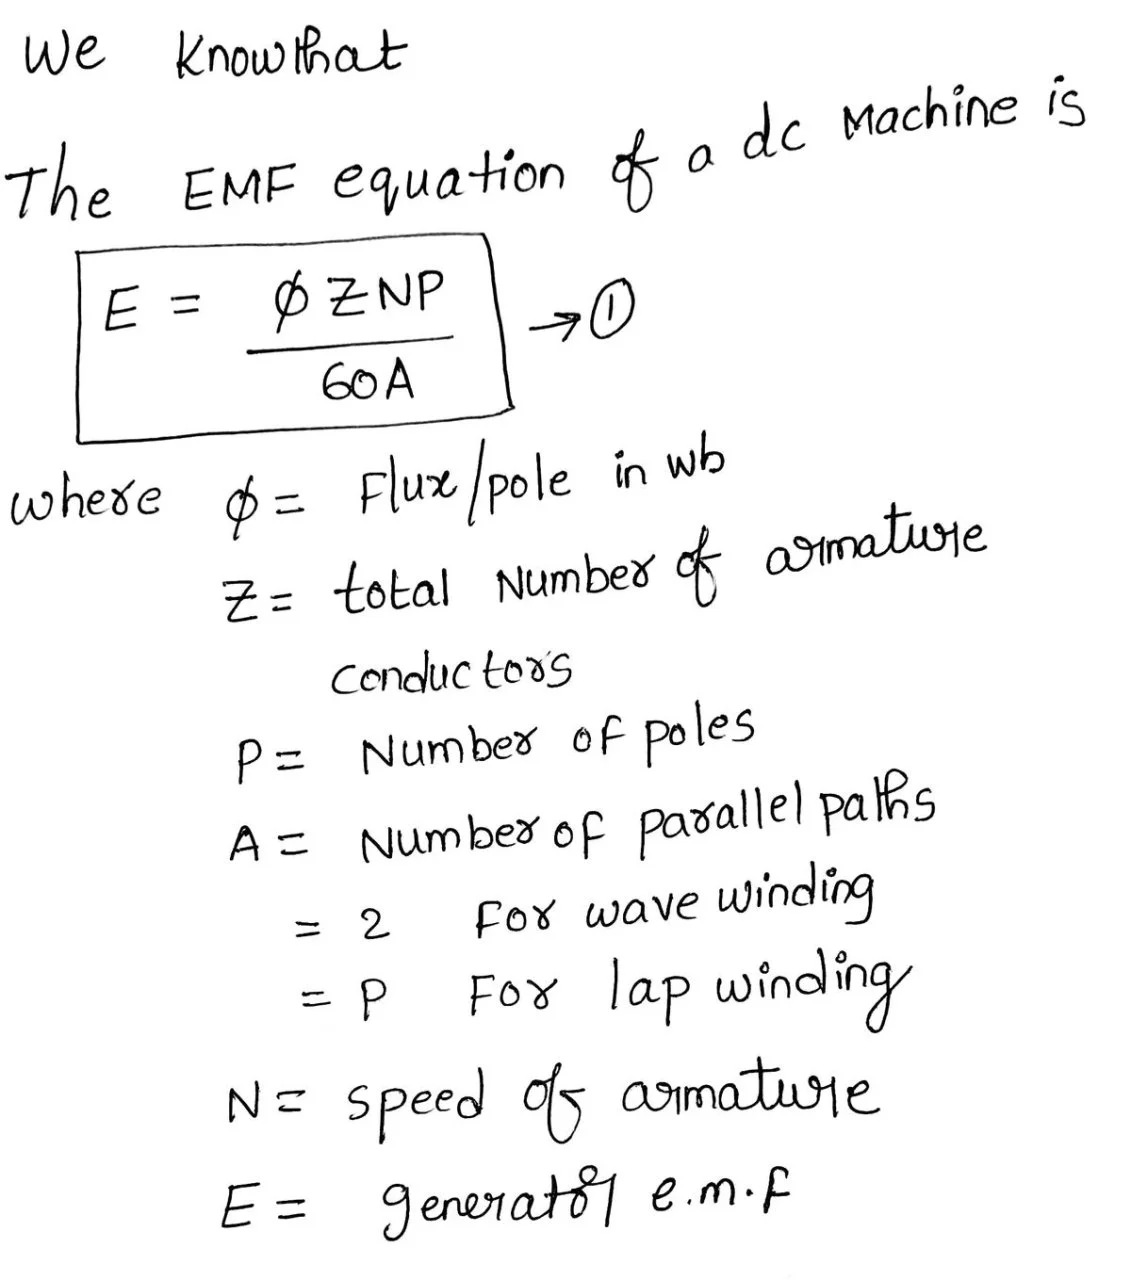 We Know that
The EMF equation of a dc Machine is
E = ϕZNP / 60A → ①
where ϕ = Flux/pole in wb
Z = total Number of armature
conductors
P = Number of poles
A = Number of parallel paths
= 2 For wave winding
= P For lap winding
N = speed of armature
E = generator e.m.f